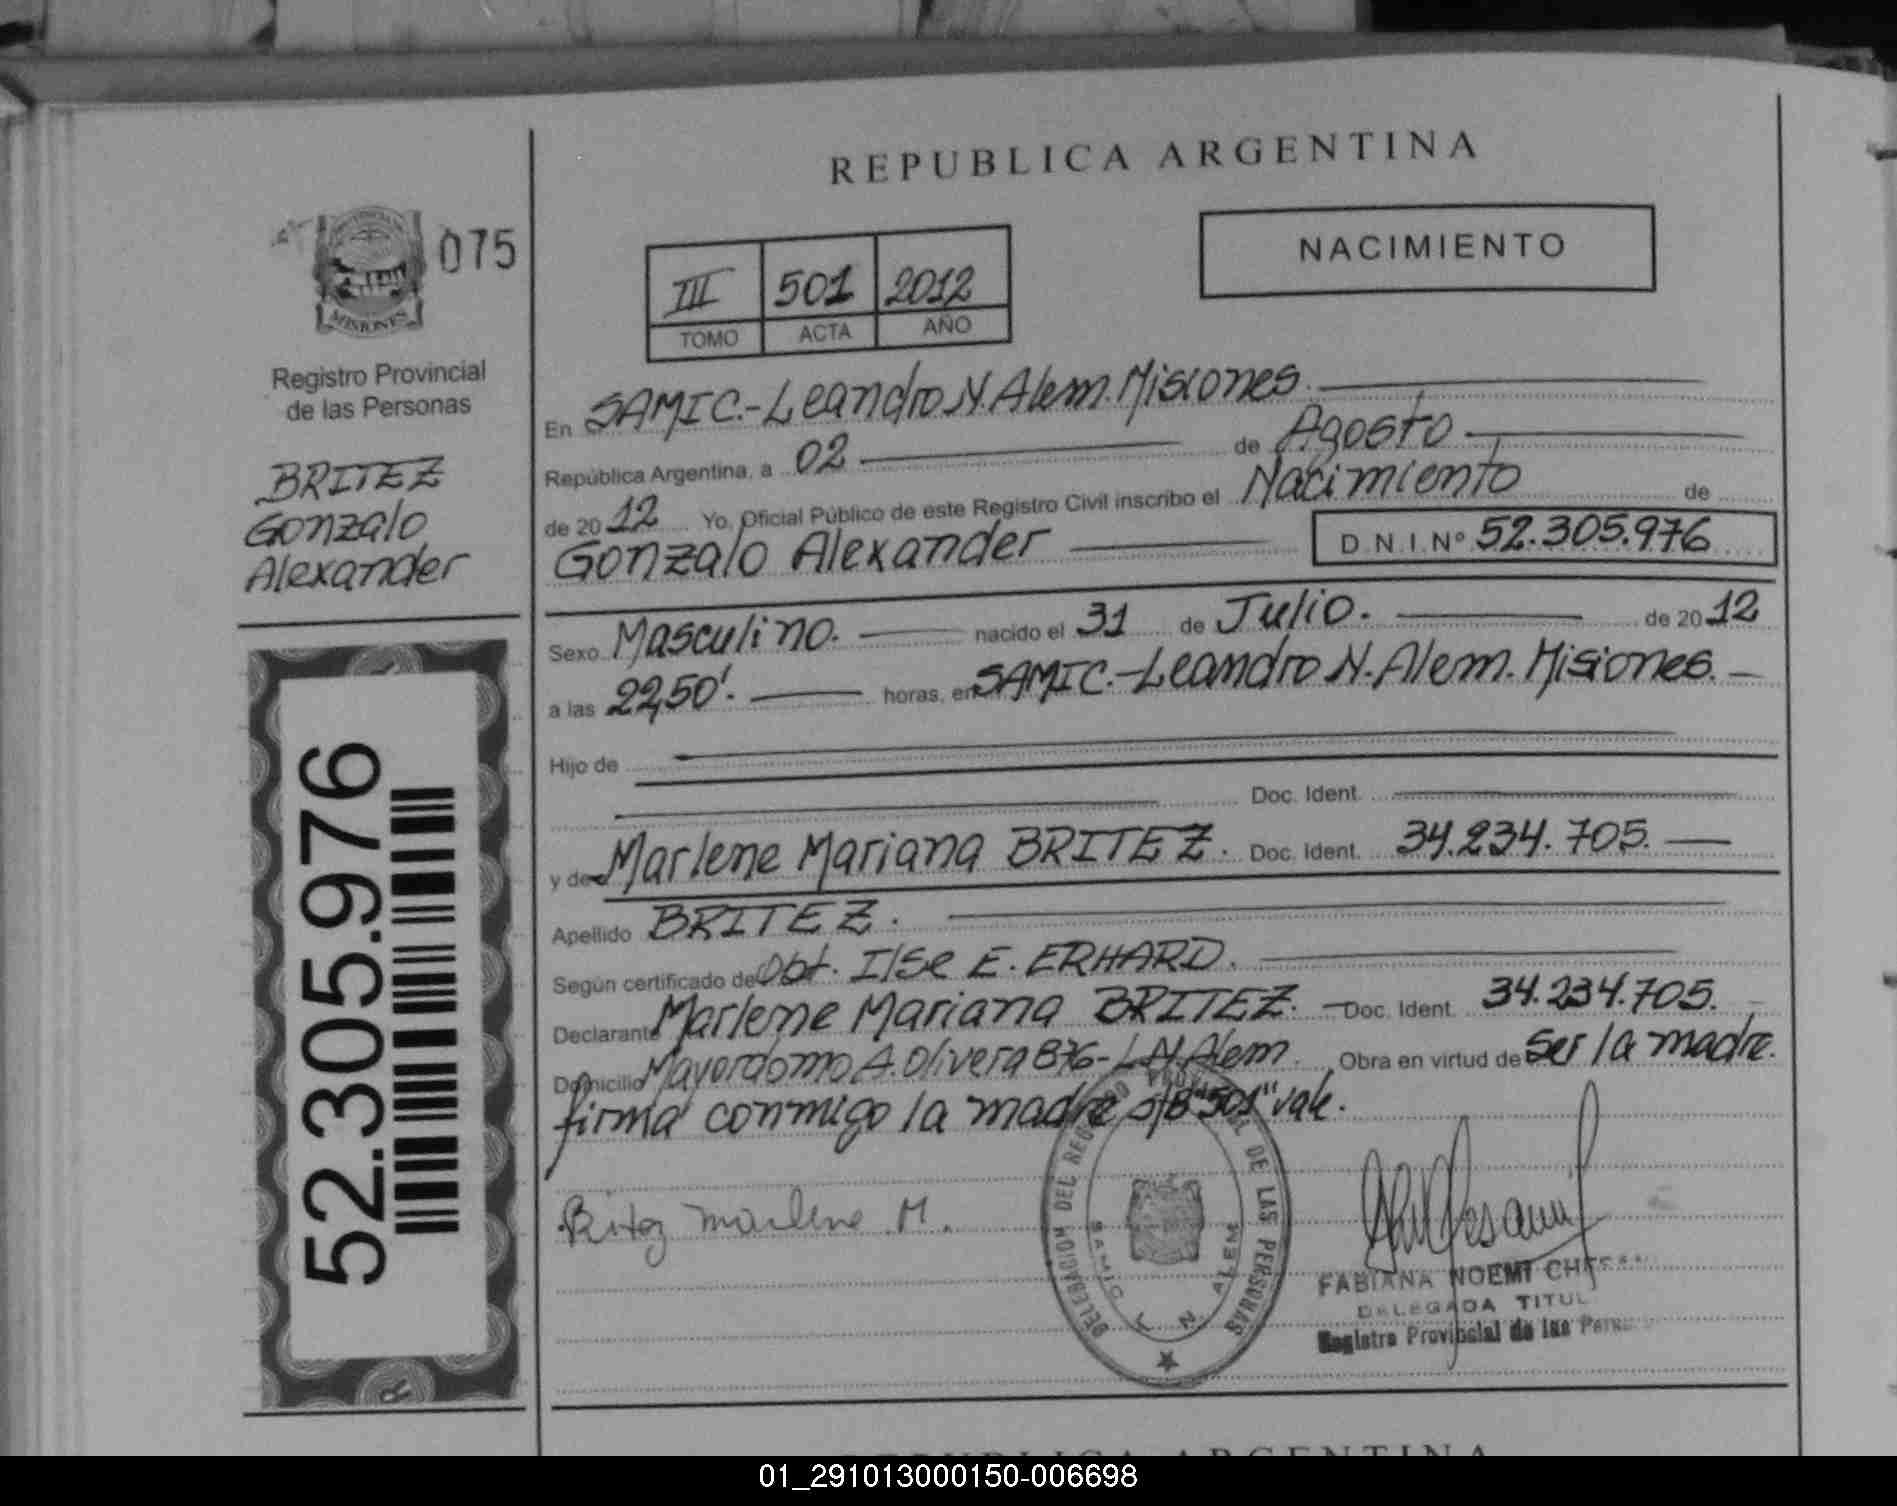 REPUBLICA ARGENTINA
075
MISIONES
Registro Provincial
de las Personas
BRITEZ
Gonzalo
Alexander
52.305.976
NACIMIENTO
III 501 2012
TOMO ACTA AÑO
En SAMIC.-Leandro N. Alem. Misiones.
República Argentina, a 02 de Agosto
de 2012 Yo, Oficial Público de este Registro Civil inscribo el Nacimiento de
Gonzalo Alexander D.N.I.Nº 52.305.976
Sexo Masculino. nacido el 31 de Julio. de 2012
a las 22,50'. horas, en SAMIC.-Leandro N. Alem. Misiones.
Hijo de
Doc. Ident.
y de Marlene Mariana BRITEZ. Doc. Ident. 34.234.705.
Apellido BRITEZ.
Según certificado de Obt. Ilse E. ERHARD.
Declarante Marlene Mariana BRITEZ. Doc. Ident. 34.234.705.
Domicilio Mayordomo A. Olivera 876-L.N.Alem. Obra en virtud de ser la madre.
firma conmigo la madre s/B "501" vale.
Britez Marlene M.
DELEGACION DEL REGISTRO PROVINCIAL DE LAS PERSONAS
SAMIC L. N. ALEM
FABIANA NOEMI
DELEGADA
Registro Provincial de las
REPUBLICA ARGENTINA
01_291013000150-006698